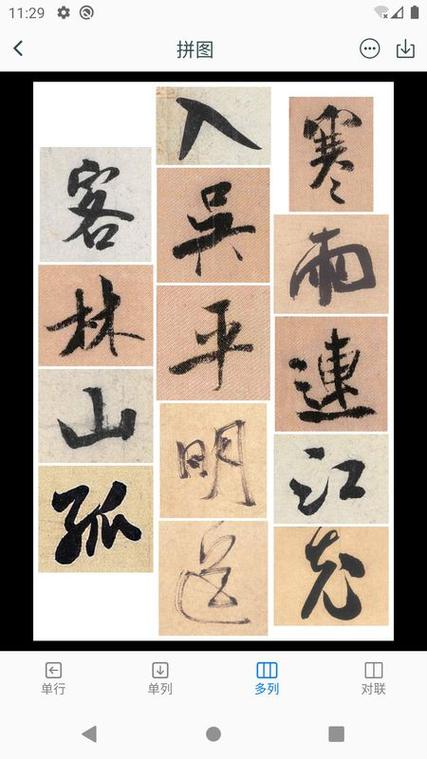 11:29
拼图
寒雨連江夜
入吳平明送
客林山孤
单行
单列
多列
对联